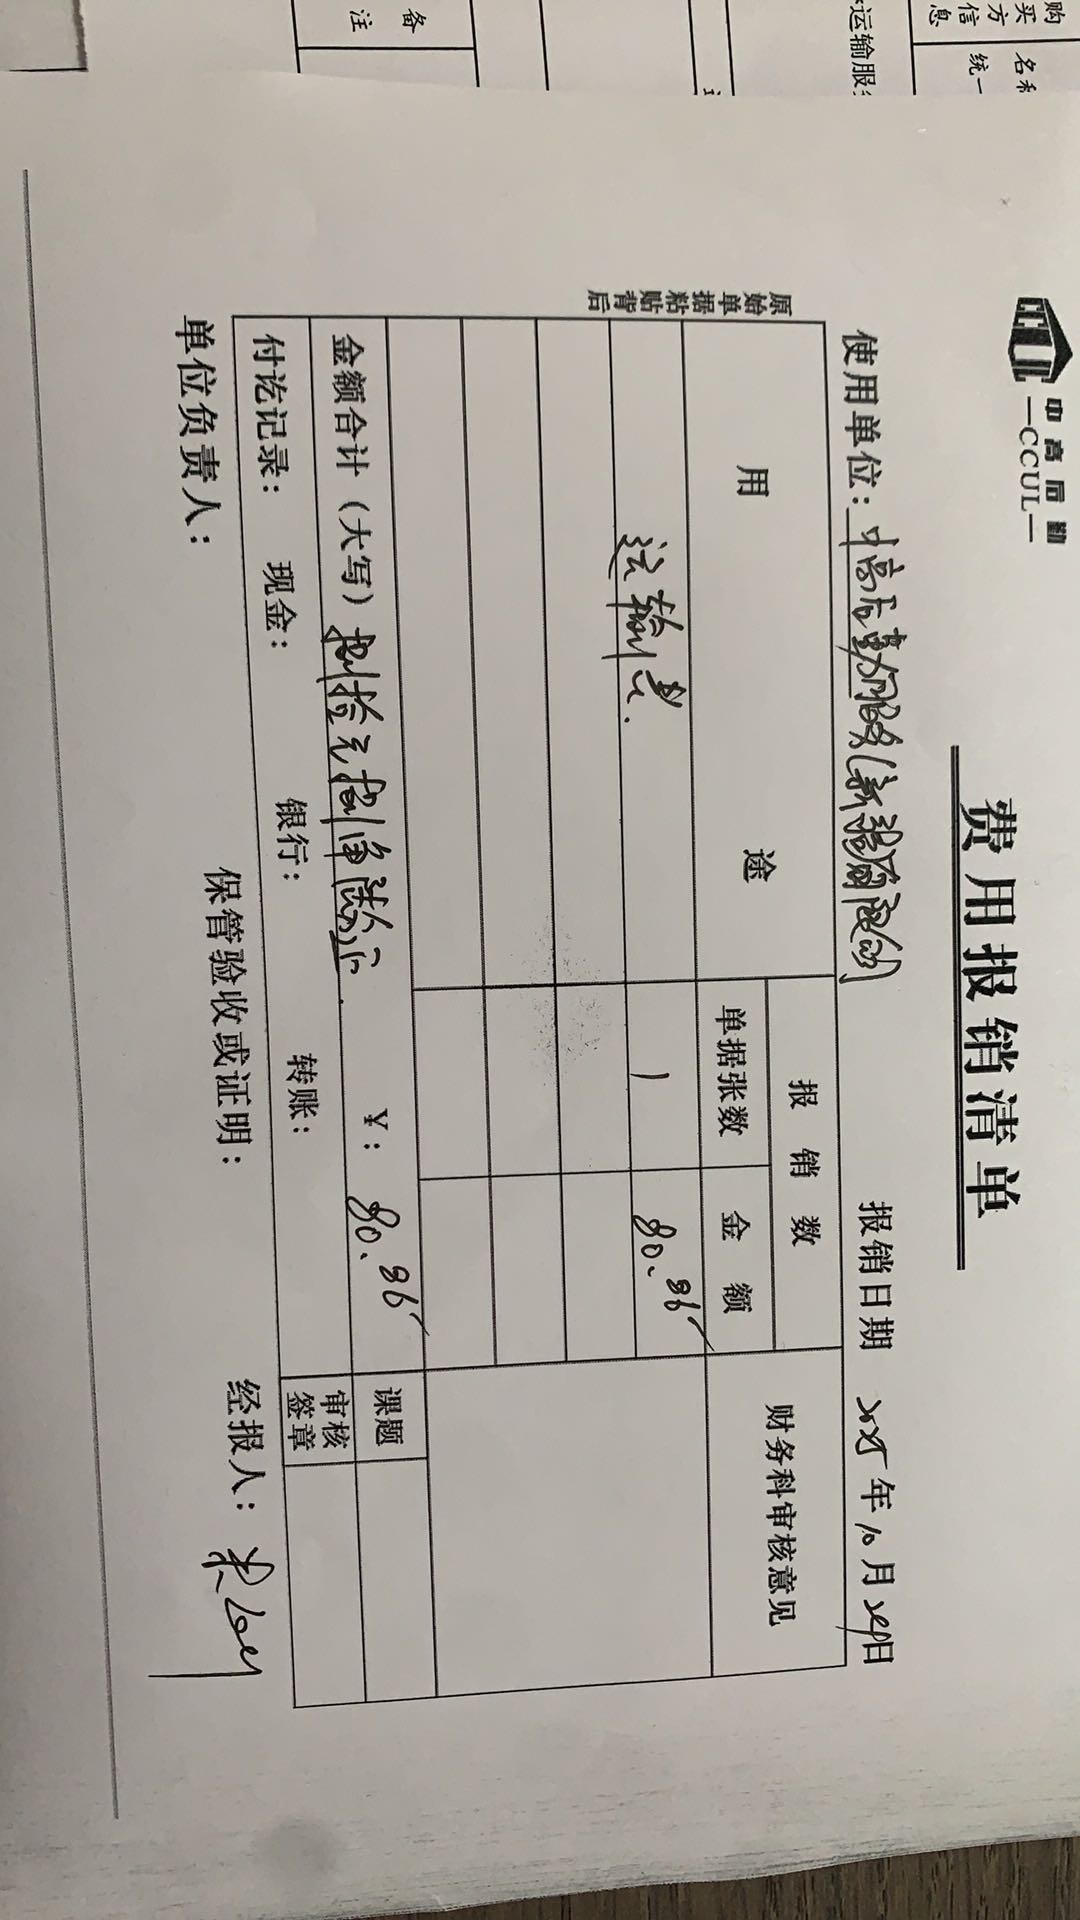 中高后勤
—CCUL—
费用报销清单
使用单位：中高后勤服务(新疆)有限公司 报销日期 2025年10月24日
原始单据粘贴背后
用途 报销数 财务科审核意见
单据张数 金额
运输费. 1 80.86
金额合计（大写）捌拾元捌角陆分. ￥：80.86 课题
付讫记录： 现金： 银行： 转账： 审核签章
单位负责人： 保管验收或证明： 经报人：
购买方信息
名称
统一
运输服务
备注